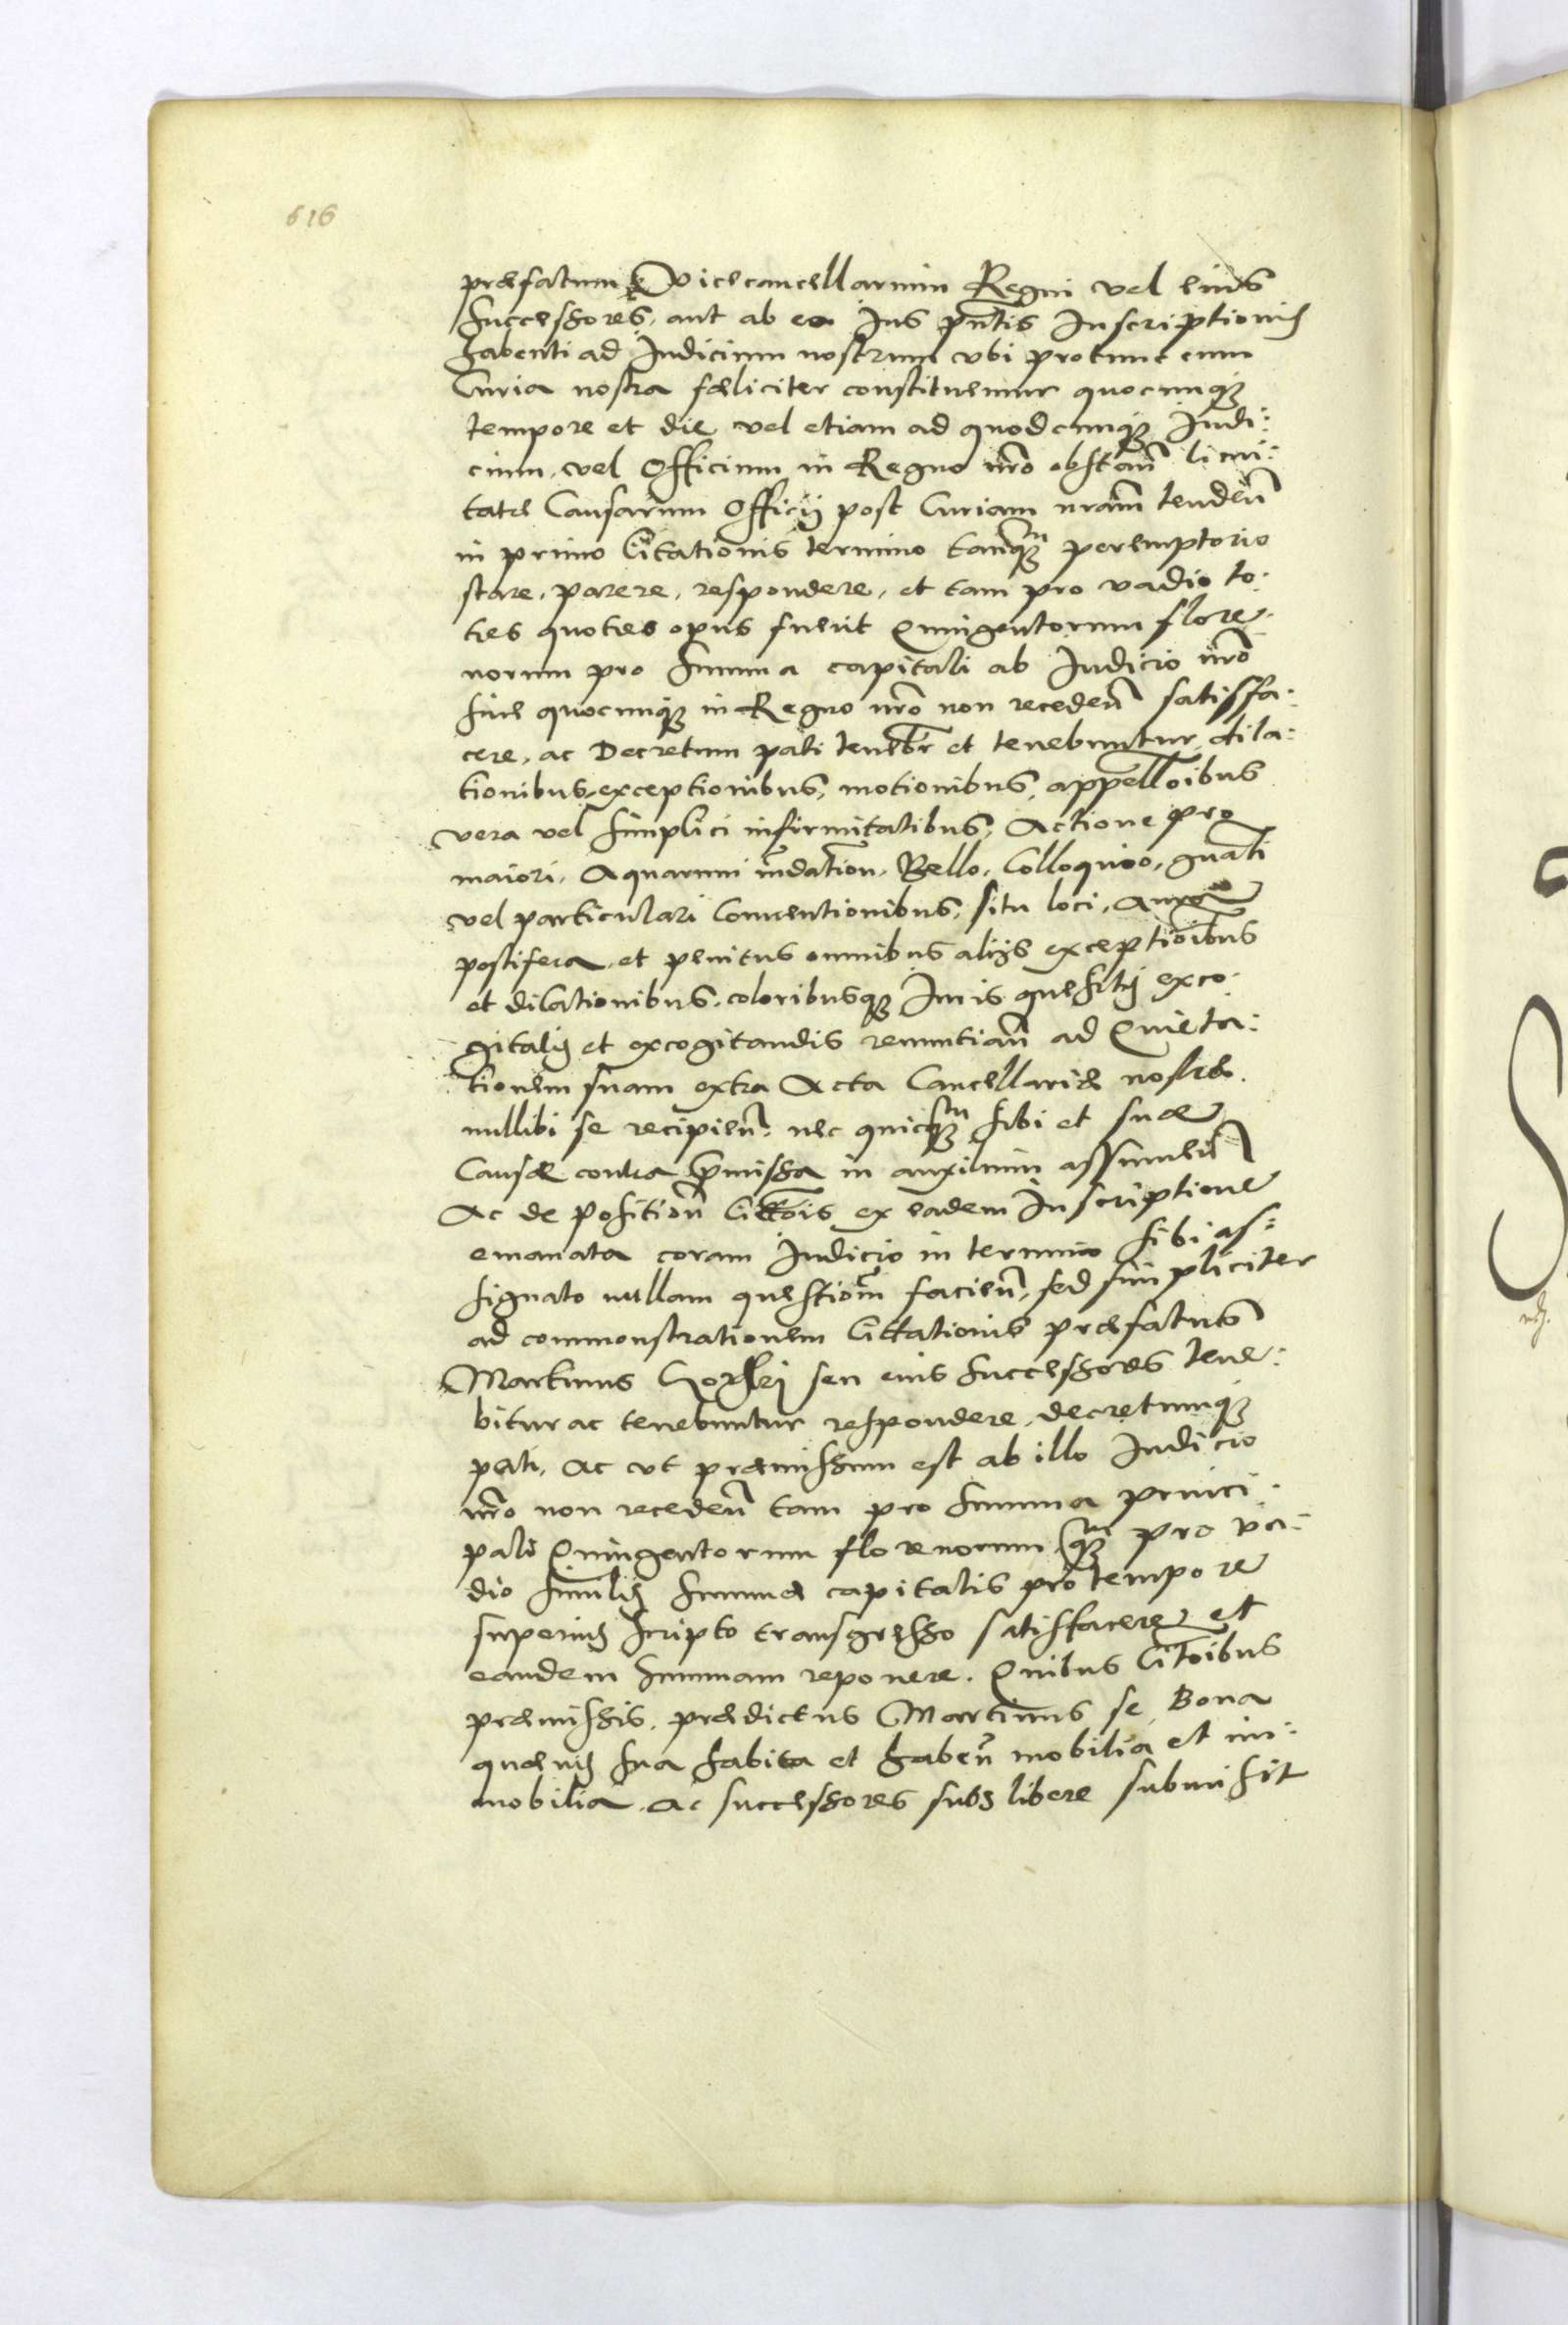 616
præfatum Vicecancellarium Regni vel eius
successores, aut ab eo Ius pn̄tis Inscriptionis
habenti ad Iudicium nostrum vbi protunc cum
Curia nostra fæliciter constituemur quocunq3
tempore et die vel etiam ad quodcunq3 Iudi:
cium, vel Officium in Regno nr̄o obstan̄
tate Causarum Officij post Curiam nr̄am tenden̄
in primo Citationis termino tanq3m peremptorio
stare, parere, respondere, et tam pro vadio to:
ties quoties opus fuerit Quingentorum flore:
norum pro summa capitali ab Iudicio nr̄o
siue quocunq3 in Regno nr̄o non receden̄ satisfa:
cere, ac Decretum pati tenebr̄ et tenebuntur, dila:
tionibus, exceptionibus, motionibus, appellōibus
vera vel simplici infirmitatibus, Actione pro
maiori, Aquarum in̄undation, Bello, Colloquioo, gn̄ali
vel particulari Conuentionibus, situ loci,
pestifera, et penitus omnibus alijs exceptiōibus
et dilationibus, coloribusq3 Iuris quesitis exco:
gitatis et excogitandis renuntian̄ ad Quieta:
tionem suam extra Acta Cancellariæ nostræ
nullibi se recipien̄: nec quicq3m sibi et suæ
Causæ contra p̄missa in auxilium assumen̄
Ac de position̄ Cittōis ex eadem Inscriptione
emanata coram Iudicio in termino sibi as:
signato nullam questiōm facien̄, sed simpliciter
ad commonstrationem Cittationis præfatus
Martinus Gorski seu eius successores tene:
bitur ac tenebuntur respondere, decretumq3
pati, ac vt præmissum est ab illo Iudicio
nr̄o non receden̄ tam pro summa princi:
pali Quingentorum florenorum q3m pro va:
dio similis summæ capitalis pro tempore
superius scripto transgresso satisfacere et
eandem summam reponere. Quibus Citōibus
præmissis, prædictus Martinus se, Bona
quæuis sua habita et haben̄ mobilia et im:
mobilia, ac successores suos libere submisit